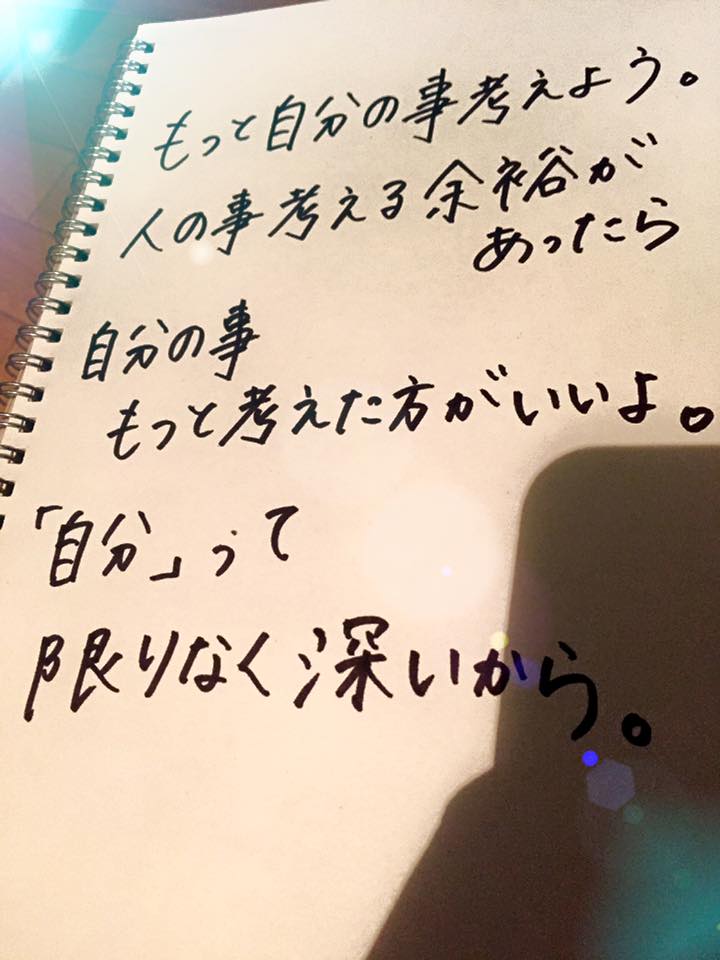 もっと自分の事考えよう。
人の事考える余裕が
あったら
自分の事
もっと考えた方がいいよ。
「自分」って
限りなく深いから。